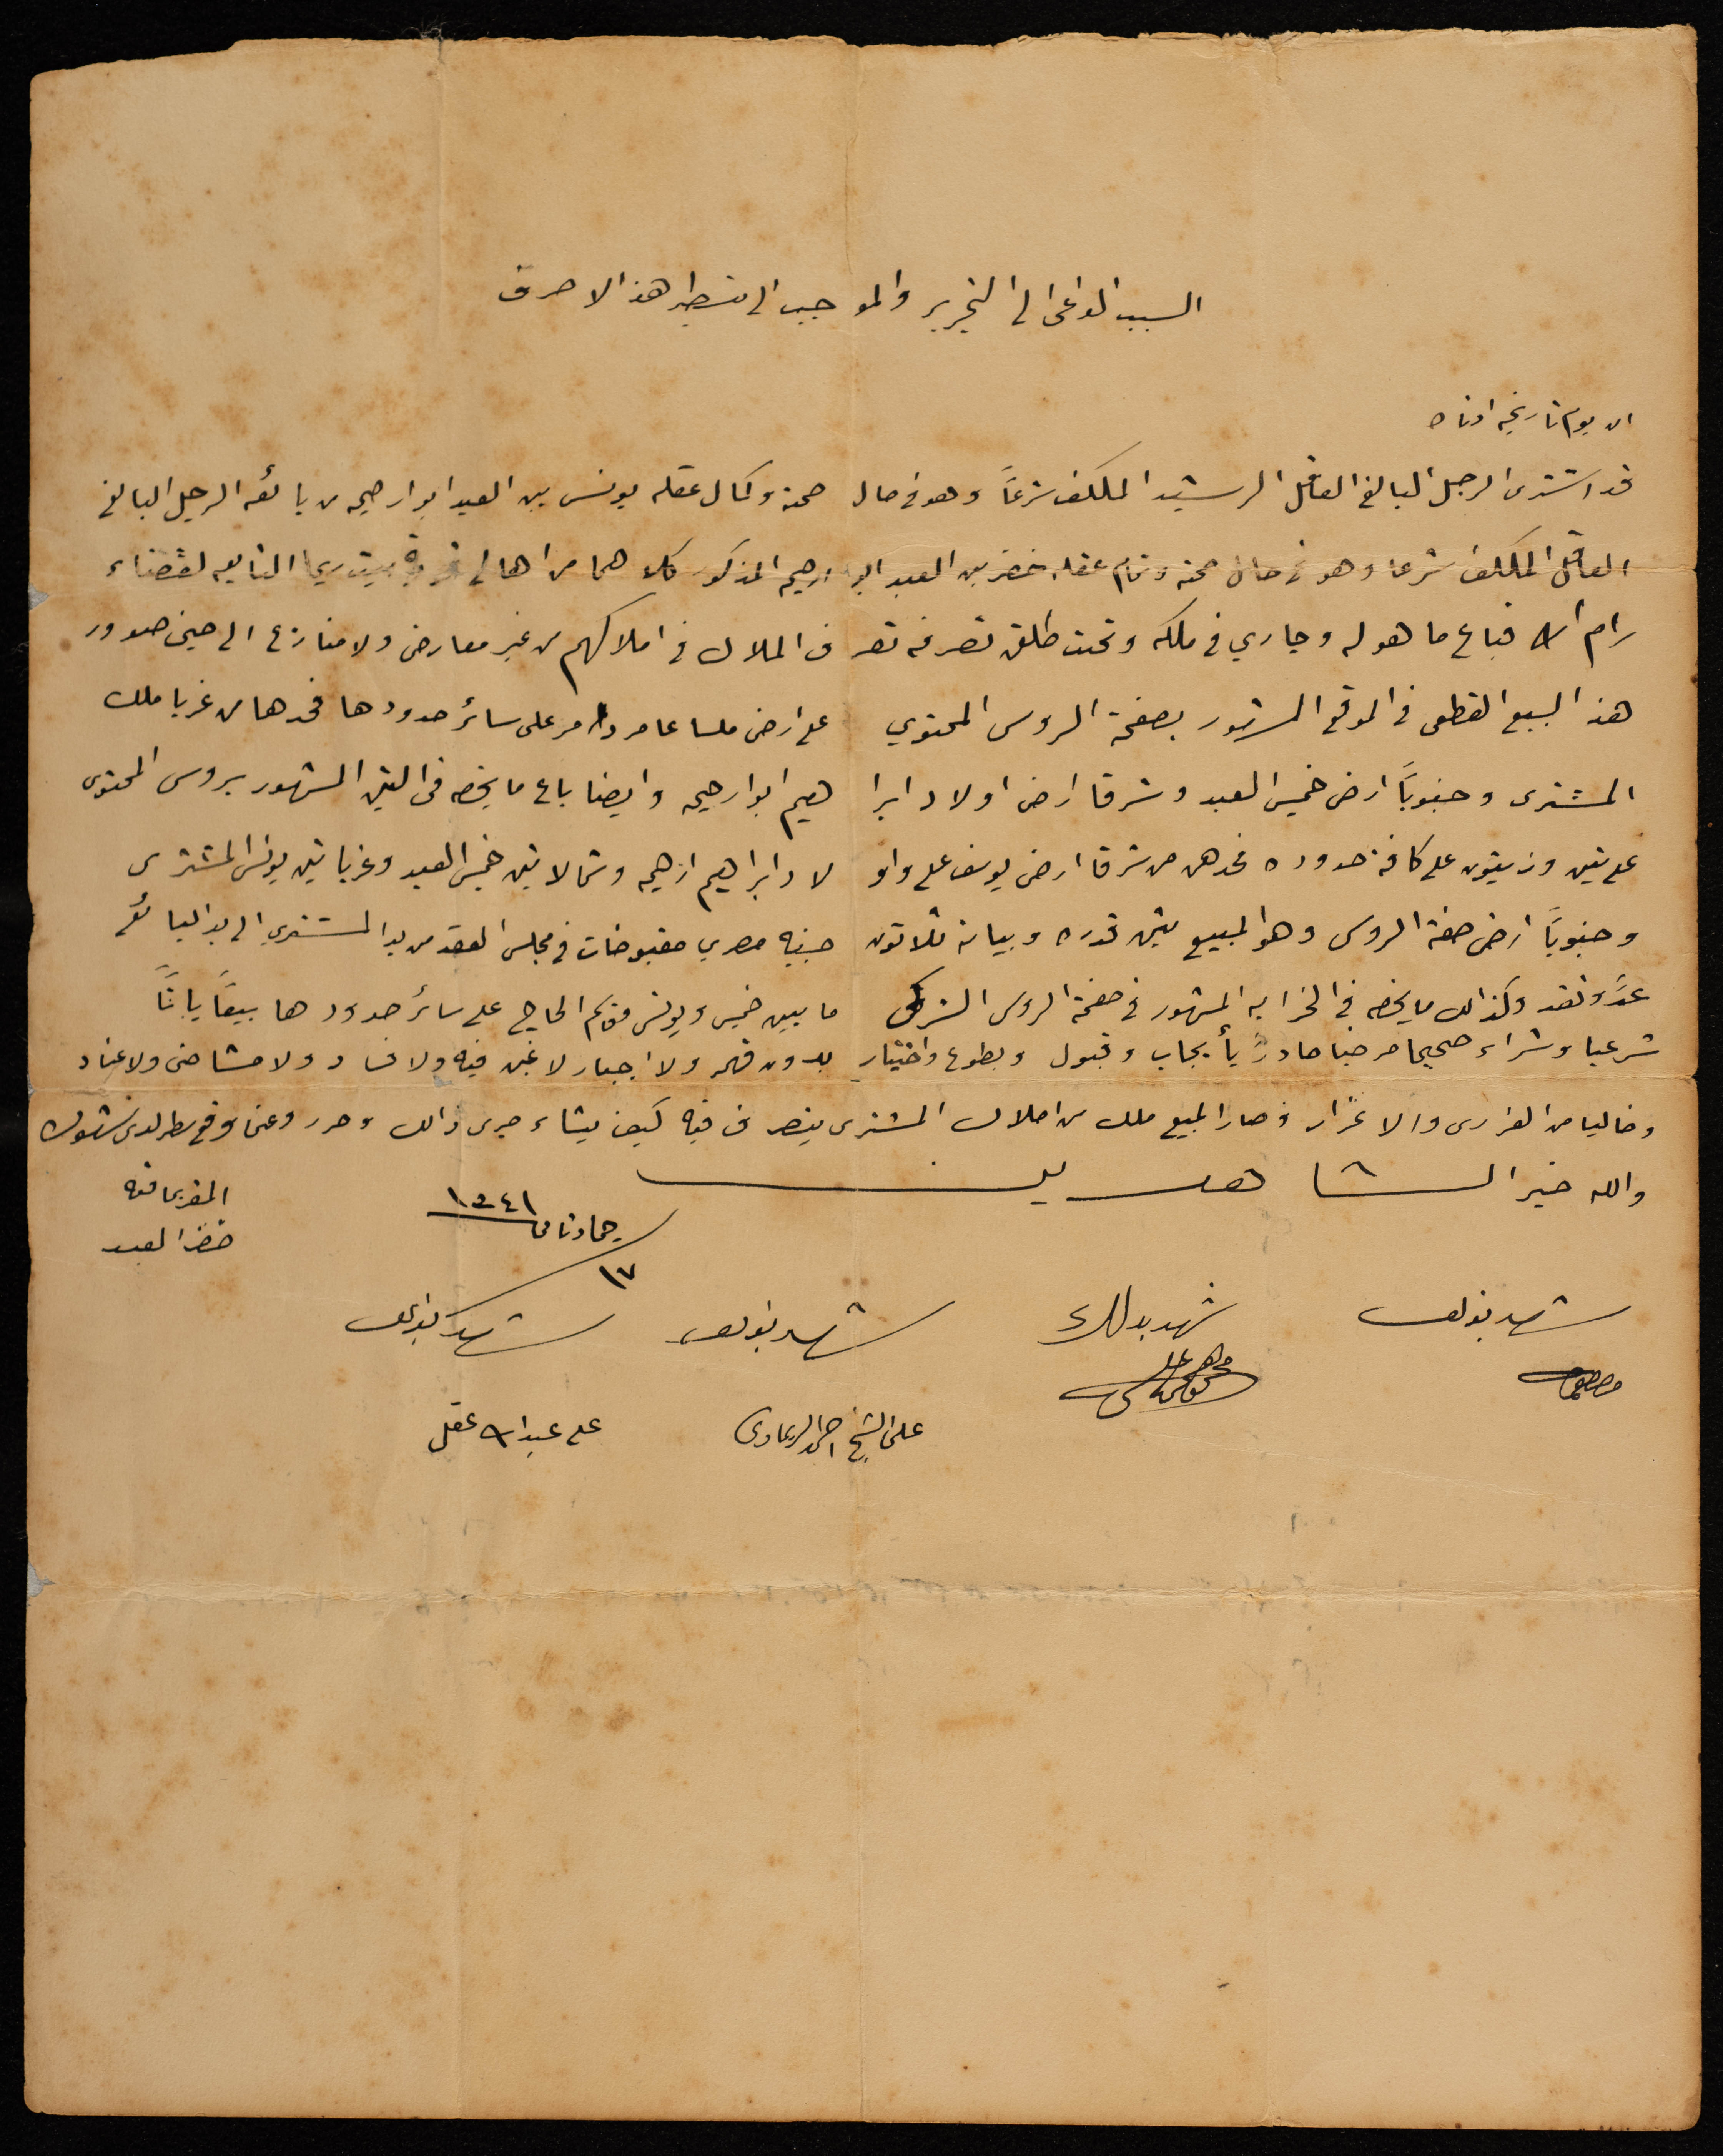 السبب الداعى الى التحرير والموجب الى تسطير هذا الاحرف
ان يوم تاريخه ادناه
قد اشترى الرجل البالغ العاقل الرشيد المكلف شرعاً وهو فى حال صحته وكمال عقله يونس بن العبد ابو ارحيمه من بائعه الرجل البالغ
العاقل المكلف شرعا وهو فى حال صحته وتمام عقله خضر بن العبد ابو ارحيم المذكور كلاهما من اهالى قرية بيت ريما التابعه لقضاء
رام الله فباع ما هو له وجاري فى ملكه وتحت طلق تصرفه تصرف الملاك فى املاكهم من غير معارض ولا منازع الى حين صدور
هذا البيع القطعى فى الموقع المشهور بصفحة الروس المحتوي على ارض ملسا عامر دامر على سائر حدودها فحدها من غربا ملك
المشترى وجنوباً ارض خميس العبد وشرقا ارض اولاد ابراهيم ابو ارحيمه وايضا باع ما يخصه فى التين المشهور بروس المحتوى
على تين وزيتون على كافة حدوده فحدهن من شرقا ارض يوسف على واولاد ابراهيم ارحيمه وشمالا تين خميس العبد وغربا تين يونس المشترى
وجنوباً ارض صفة الروس وهو المبيع بثمن قدره وبيانه ثلاثون جنيه مصري مقبوضات فى مجلس العقد من يد المشتري الى يد البائع
عدً ونقد وكذالك ما يخصه فى الخرابه المشهور فى صفحة الروس الشركى ما بين خميس ويونس الحاج على سائر حدودها بيعاً باتاً
شرعيا وشراء صحيحا مرضيا صادرً بأيجاب وقبول وبطوع واختيار بدون قهر ولا اجبار لا غبن فيه ولا فساد ولا عناد
وخاليا من الغررى والاغرار وصار المبيع ملك من املاك المشترى يتصرف فيه كيف يشاء جرى ذالك وحرر وعن ما وقع سطر لدى شهوده
والله خير الشاهدين
المقر بما فيه
خضر العبد
١٧ جماد ثانى ١٣٤١
شهد بذلك
مصطفى
شهد بذلك
شهد بذلك
على الشيخ احمد الريماوى
شهد بذلك
على عبد الله عقل